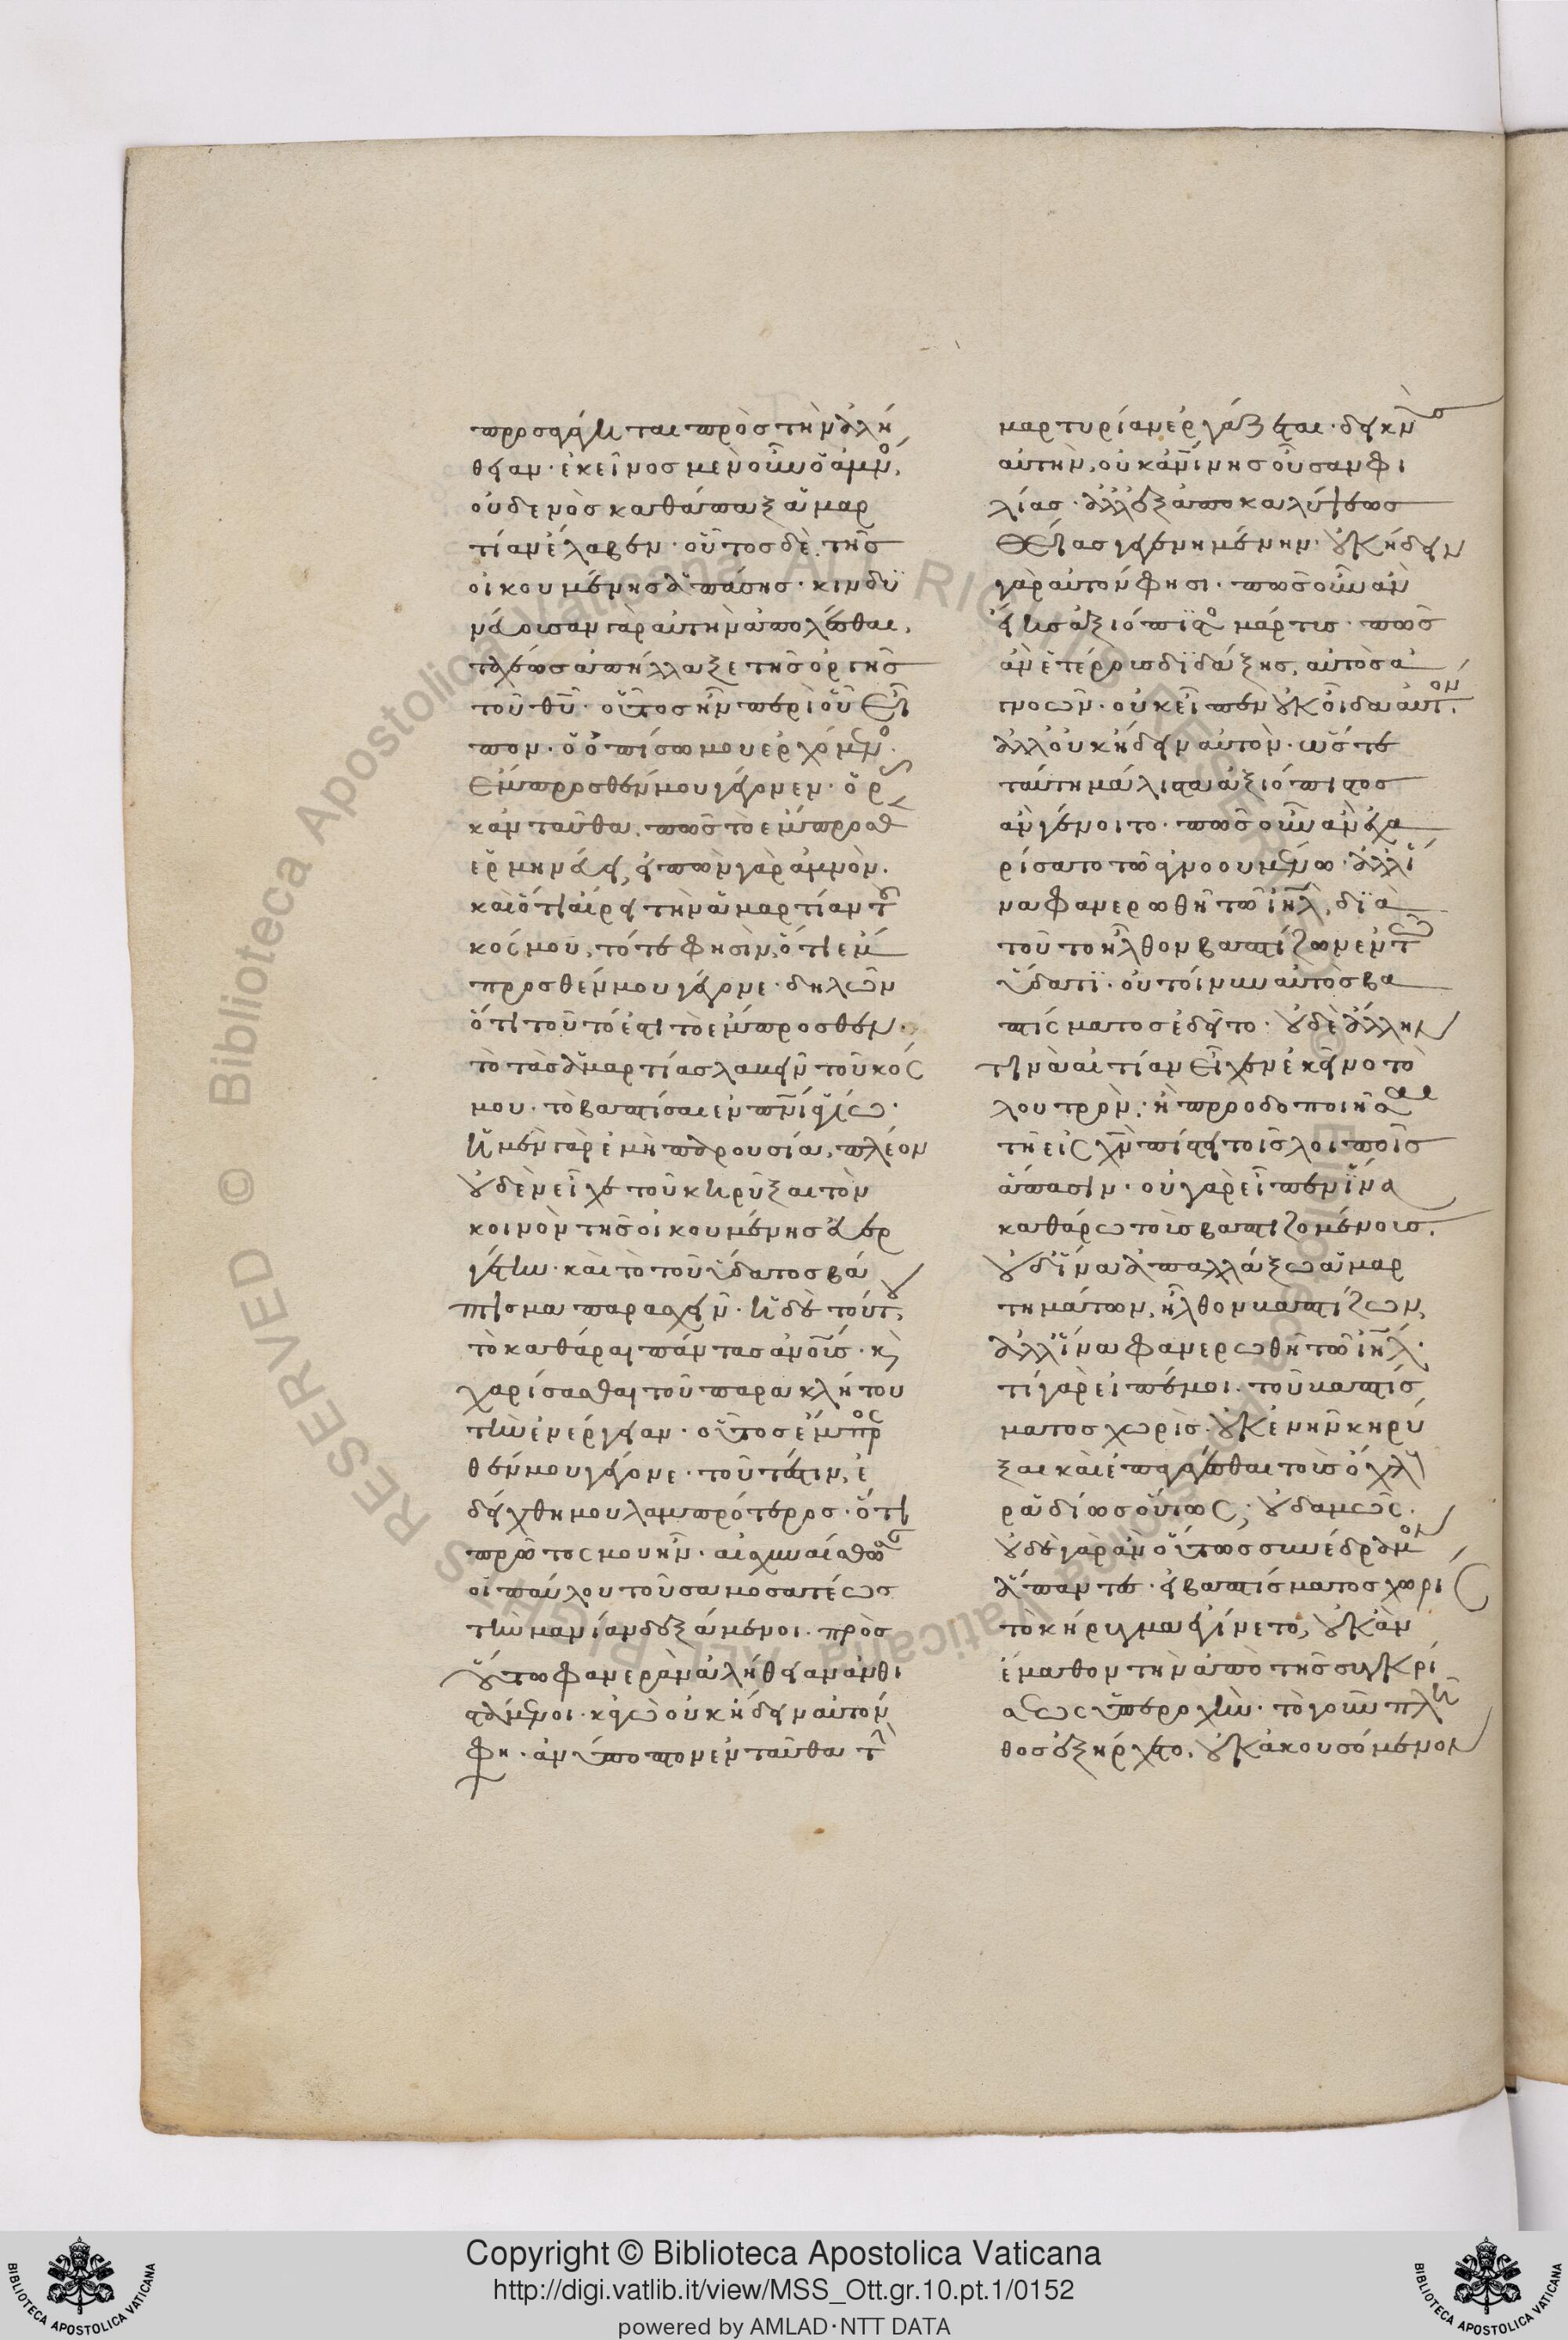 προσάγηται πρὸς τὴν ἀλή
θειαν. ἐκεῖνος μὲν οὖν ὁ ἀμν,
οὐδενὸς καθάπαξ ἁμαρ
τίαν ἔλαβεν. οὗτος δὲ τῆς
οἰκουμένης ἁπάσης. κινδυ
νεύουσαν γὰρ αὐτὴν ἀπολέσθαι,
ταχέως ἀπήλλαξε τῆς ὀργῆς
τοῦ θυ. οὗτος ἦν περὶ οὗ εἶ
πον. ὁ ὀπίσω μου ἐρχόμενο.
ἔμπροσθέν μου γέγονεν. ὅρ
κἀνταῦθα. πῶς τὸ ἔμπροσθ
ἑρμηνεύει, εἰπὼν γὰρ ἀμνὸν.
καὶ ὅτι αἴρει τὴν ἁμαρτίαν τ
κόσμου, τότε φησὶν, ὅτι ἔμ
προσθέν μου γέγονε. δηλῶν
ὅτι τοῦτό ἐστι τὸ ἔμπροσθεν.
τὸ τὰς ἁμαρτίας λαβεῖν τοῦ κόσ
μου. τὸ βαπτίσαι ἐν πνι ἁγίω.
ἡ μὲν γὰρ ἐμὴ παρουσία, πλέον
οὐδὲν εἶχε τοῦ κηρῦξαι τὸν
κοινὸν τῆς οἰκουμένης εὐερ
γέτην. καὶ τὸ τοῦ ὕδατος βά
πτισμα παρασχεῖν. ἡ δὲ τούτου,
τὸ καθάραι πάντας ἀνοῖς. κ
χαρίσασθαι τοῦ παρακλήτου
τὴν ἐνέργειαν. οὗτος ἔμπροσ
θέν μου γέγονε. τοῦτέστιν, ἐ
δείχθη μου λαμπρότερος. ὅτι
πρῶτος μου ἦν. αἰσχυνέσθως
οἱ παύλου τοῦ σαμοσατέως
τὴν μανίαν δεξάμενοι. πρὸς
οὕτω φανερὰν ἀλήθειαν ἀνθι
στάμενοι. κἀγὼ οὐκ ἤδειν αὐτόν
φη. ἀνύποπτον ἐνταῦθα τὴ
μαρτυρίαν ἐργάζεται. δεικνὺς
αὐτὴν, οὐκ ἀνίνης οὖσαν φι
λίας. ἀλλ' ἐξ ἀποκαλύψεως
θείας γεγενημένην. οὐκ ἤδειν
γὰρ αὐτόν φησι. πῶς οὖν ἂν
εἴης ἀξιόπιστο μάρτυς. πῶς
ἂν ἑτέρους διδάξης, αὐτὸς ἀ
γνοῶν. οὐκ εἶπεν οὐκ οἶδα αὐτον.
ἀλλ' οὐκ ἤδειν αὐτὸν. ὥστε
ταύτη μάλιστα ἀξιόπιστος
ἂν γένοιτο. πῶς οὖν ἂν ἐχα
ρίσατο τῶ ἀγνοουμένω. ἀλλ' ἵ
να φανερωθῆ τῶ ιηλ, διὰ
τοῦτο ἦλθον βαπτίζων ἐν τῶ
ὕδατι. οὐ τοίνυν αὐτὸς βα
πτίσματος ἐδεῖτο. οὐδὲ ἄλλην
τινὰ αἰτίαν εἶχεν ἐκεῖνο τὸ
λουτρὸν. ἢ προοδοποιῆσαι
τὴν εἰς χν πίστιν τοῖς λοιποῖς
ἅπασιν. οὐ γὰρ εἶπεν ἵνα
καθάρω τοὺς βαπτιζομένους.
οὐδ' ἵνα ἀπαλλάξω ἁμαρ
τημάτων, ἦλθον βαπτίζων,
ἀλλ' ἵνα φανερωθῆ τῶ ιηλ.
τί γὰρ εἰπέ μοι. τοῦ βαπτίσ
ματος χωρὶς. οὐκ ἐνῆν κηρύ
ξαι καὶ ἐπάγεσθαι τοὺς ὄχλ
ραδίως οὕτως; οὐδαμῶς.
οὐδὲ γὰρ ἂν οὕτως συνέδραμον
ἅπαντες. εἰ βαπτίσματος χωρὶς
τὸ κήρυγμα ἐγίνετο, οὐκ ἂν
ἔμαθον τὴν ἀπὸ τῆς συγκρί
σεως ὑπεροχὴν. τὸ γοῦν πλῆ
θος ἐξήρχετο, οὐκ ἀκουσόμενον
Copyright © Biblioteca Apostolica Vaticana
http://digi.vatlib.it/view/MSS_Ott.gr.10.pt.1/0152
powered by AMLAD·NTT DATA